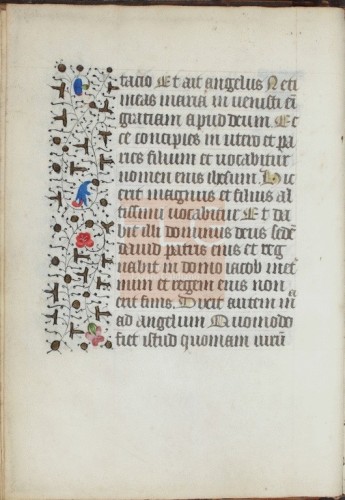 tacio Et ait angelus Ne ti
meas maria in venisti eī
gratiam apud deum Ec
ce concipies in utero et pa
ries filium et vocabitur
nomen eius ihesum hic
erit magnus et filius al
tissimi vocabitur Et da
bit illi dominus deus sedē
david patris eius et reg
nabit in domo iacob īet
num et regem eius non
erit finis Dixit autem m
ad angelum Quomodo
fiet istud quoniam virū